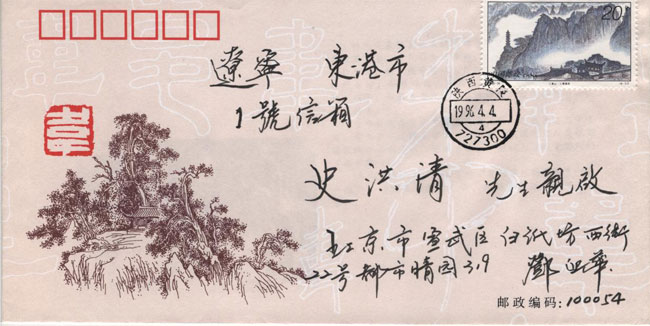 20
遼寧 東港市
1號信箱
陕西·黄陵
1996.4.4.
4
727300
史洪清 先生親啟
京市宣武区白纸坊西街
22号 市晴园3.9 鄧
邮政编码: 100054